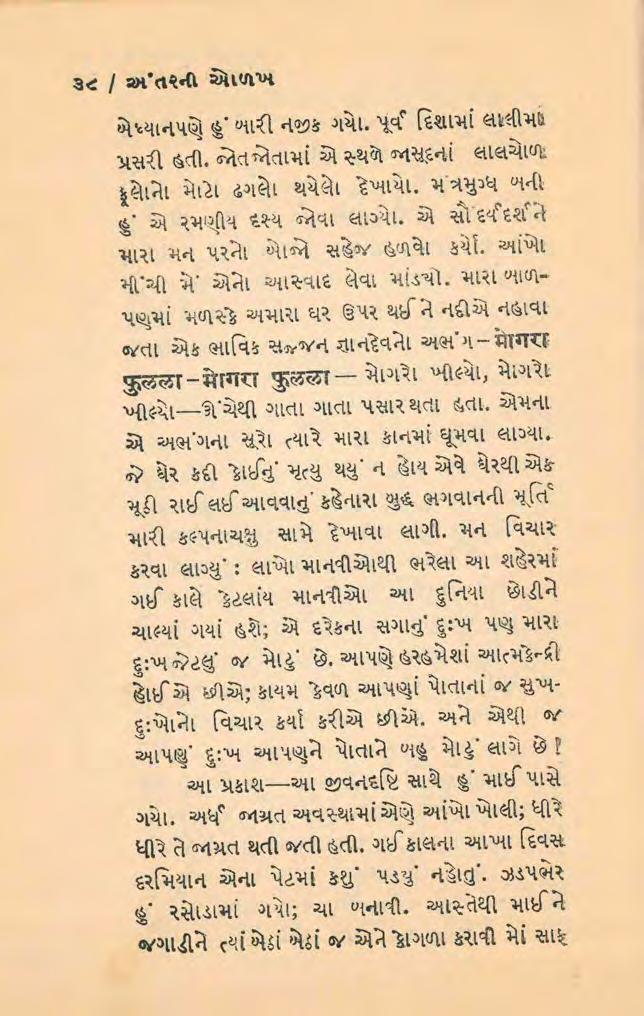 ૩૮ / અંતરની ઓળખ
બેધ્યાનપણે હું બારી નજીક ગયો. પૂર્વ દિશામાં લાલીમા
પ્રસરી હતી. જોતજોતામાં એ સ્થળે જાસૂદનાં લાલચોળ
ફૂલોનો મોટો ઢગલો થયેલો દેખાયો. મંત્રમુગ્ધ બની
હું એ રમણીય દૃશ્ય જોવા લાગ્યો. એ સૌંદર્યદર્શને
મારા મન પરનો બોજો સહેજ હળવો કર્યો. આંખો
મીંચી મેં એનો આસ્વાદ લેવા માંડયો. મારા બાળ-
પણમાં મળસ્કે અમારા ઘર ઉપર થઈ ને નદીએ નહાવા
જતા એક ભાવિક સજ્જન જ્ઞાનદેવનો અભંગ – मोगरा
फुलला – मोगरा फुलला — મોગરો ખીલ્યો, મોગરો
ખીલ્યો—ઊંચેથી ગાતા ગાતા પસાર થતા હતા. એમના
એ અભંગના સૂરો ત્યારે મારા કાનમાં ઘૂમવા લાગ્યા.
જે ઘેર કદી કોઈનું મૃત્યુ થયું ન હોય એવે ઘેરથી એક
મૂઠી રાઈ લઈ આવવાનું કહેનારા બુદ્ધ ભગવાનની મૂર્તિ
મારી કલ્પનાચક્ષુ સામે દેખાવા લાગી. મન વિચાર
કરવા લાગ્યું : લાખો માનવીઓથી ભરેલા આ શહેરમાં
ગઈ કાલે કેટલાંય માનવીઓ આ દુનિયા છોડીને
ચાલ્યાં ગયાં હશે; એ દરેકના સગાનું દુઃખ પણ મારા
દુઃખ જેટલું જ મોટું છે. આપણે હરહમેશાં આત્મકેન્દ્રી
હોઈ એ છીએ; કાયમ કેવળ આપણાં પોતાનાં જ સુખ-
દુઃખોનો વિચાર કર્યા કરીએ છીએ. અને એથી જ
આપણું દુઃખ આપણને પોતાને બહુ મોટું લાગે છે !
આ પ્રકાશ—આ જીવનદૃષ્ટિ સાથે હું માઈ પાસે
ગયો. અર્ધ જાગ્રત અવસ્થામાં એણે આંખો ખોલી; ધીરે
ધીરે તે જાગ્રત થતી જતી હતી. ગઈ કાલના આખા દિવસ
દરમિયાન એના પેટમાં કશું પડયું નહોતું. ઝડપભેર
હું રસોડામાં ગયો; ચા બનાવી. આસ્તેથી માઈ ને
જગાડીને ત્યાં બેઠાં બેઠાં જ એને કોગળા કરાવી મોં સાફ